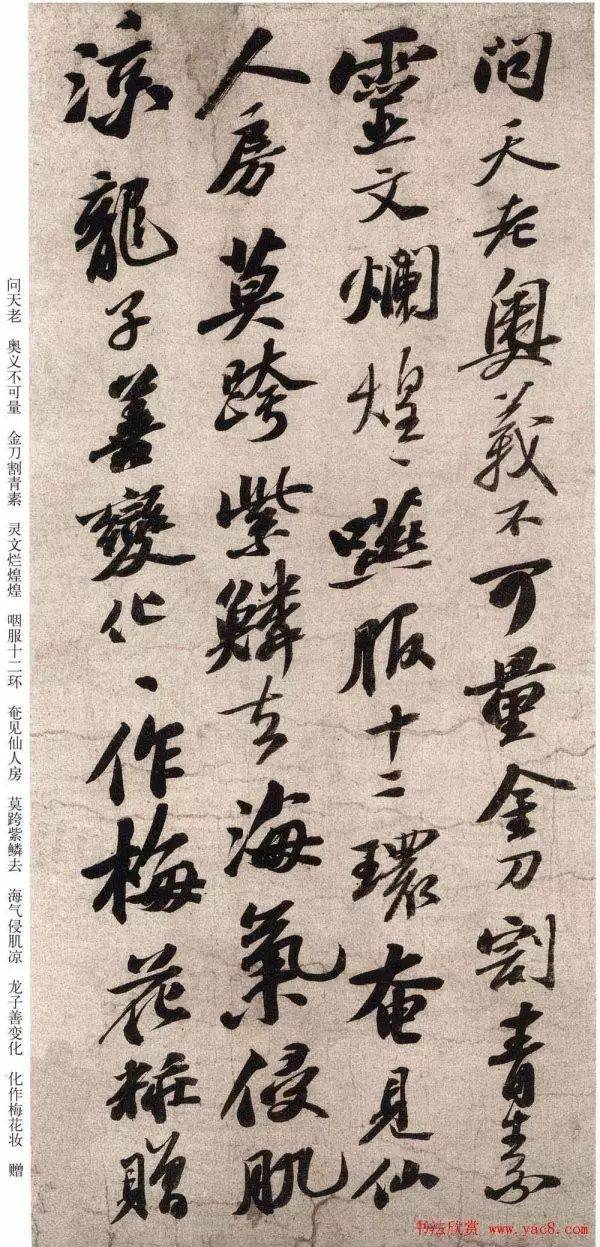 問天老奧義不可量金刀割青素
靈文爛煌〻嚥服十二環奄見仙
人房莫跨紫鱗去海氣侵肌
涼龍子善變化〻作梅花粧贈
问天老 奥义不可量 金刀割青素 灵文烂煌煌 咽服十二环 奄见仙人房 莫跨紫鳞去 海气侵肌凉 龙子善变化 化作梅花妆 赠
书法欣赏 www.yac8.com